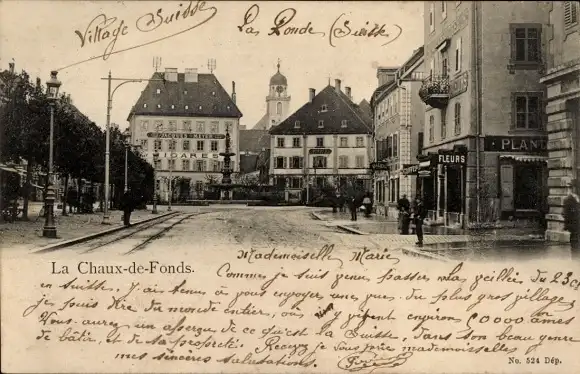 Village Suisse
La Ponde (Suisse)
JACQUES MEYER
CIGARES
FLEURS
PLANT
La Chaux-de-Fonds.
Mademoiselle Marie
Comme je suis venus passer la veillée du 23
en Suisse. J'ai tenus à vous envoyer une vue. du plus gros village
je puis dire du monde entier, où il y vivent environ 40000 âmes
Vous aurez un aperçu de ce qu'est la Suisse, dans son beau genre
de bâtir, et de sa propreté. Recevez je vous prie mademoiselle
mes sincères salutations.
No. 524 Dép.